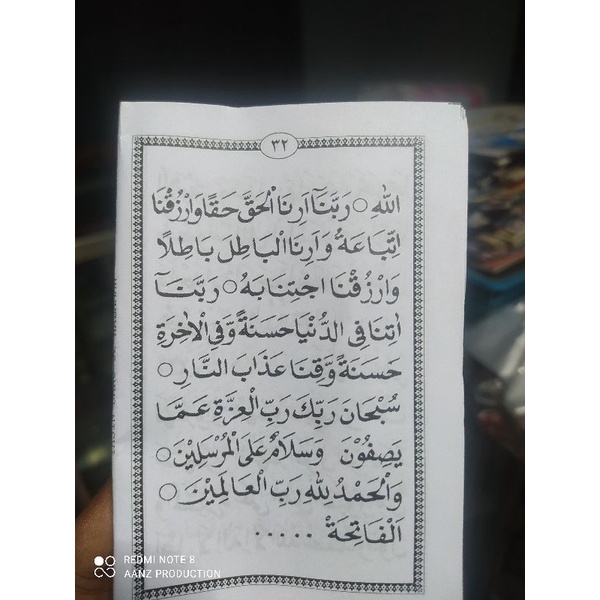 ٣٢
اللهِ ○ رَبَّنَآ اَرِنَا الْحَقَّ حَقًا وَارْزُقْنَا
اتِّبَاعَهُ وَاَرِنَا الْبَاطِلَ بَاطِلًا
وَارْزُقْنَا اجْتِنَابَهُ ○ رَبَّنَآ
اٰتِنَا فِى الدُّنْيَا حَسَنَةً وَّفِى الْاٰخِرَةِ
حَسَنَةً وَّقِنَا عَذَابَ النَّارِ ○
سُبْحَانَ رَبِّكَ رَبِّ الْعِزَّةِ عَمَّا
يَصِفُوْنَ وَسَلَامٌ عَلَى الْمُرْسَلِيْنَ ○
وَالْحَمْدُ لِلّٰهِ رَبِّ الْعَالَمِيْنَ ○
اَلْفَاتِحَةْ .....
REDMI NOTE 8
AANZ PRODUCTION